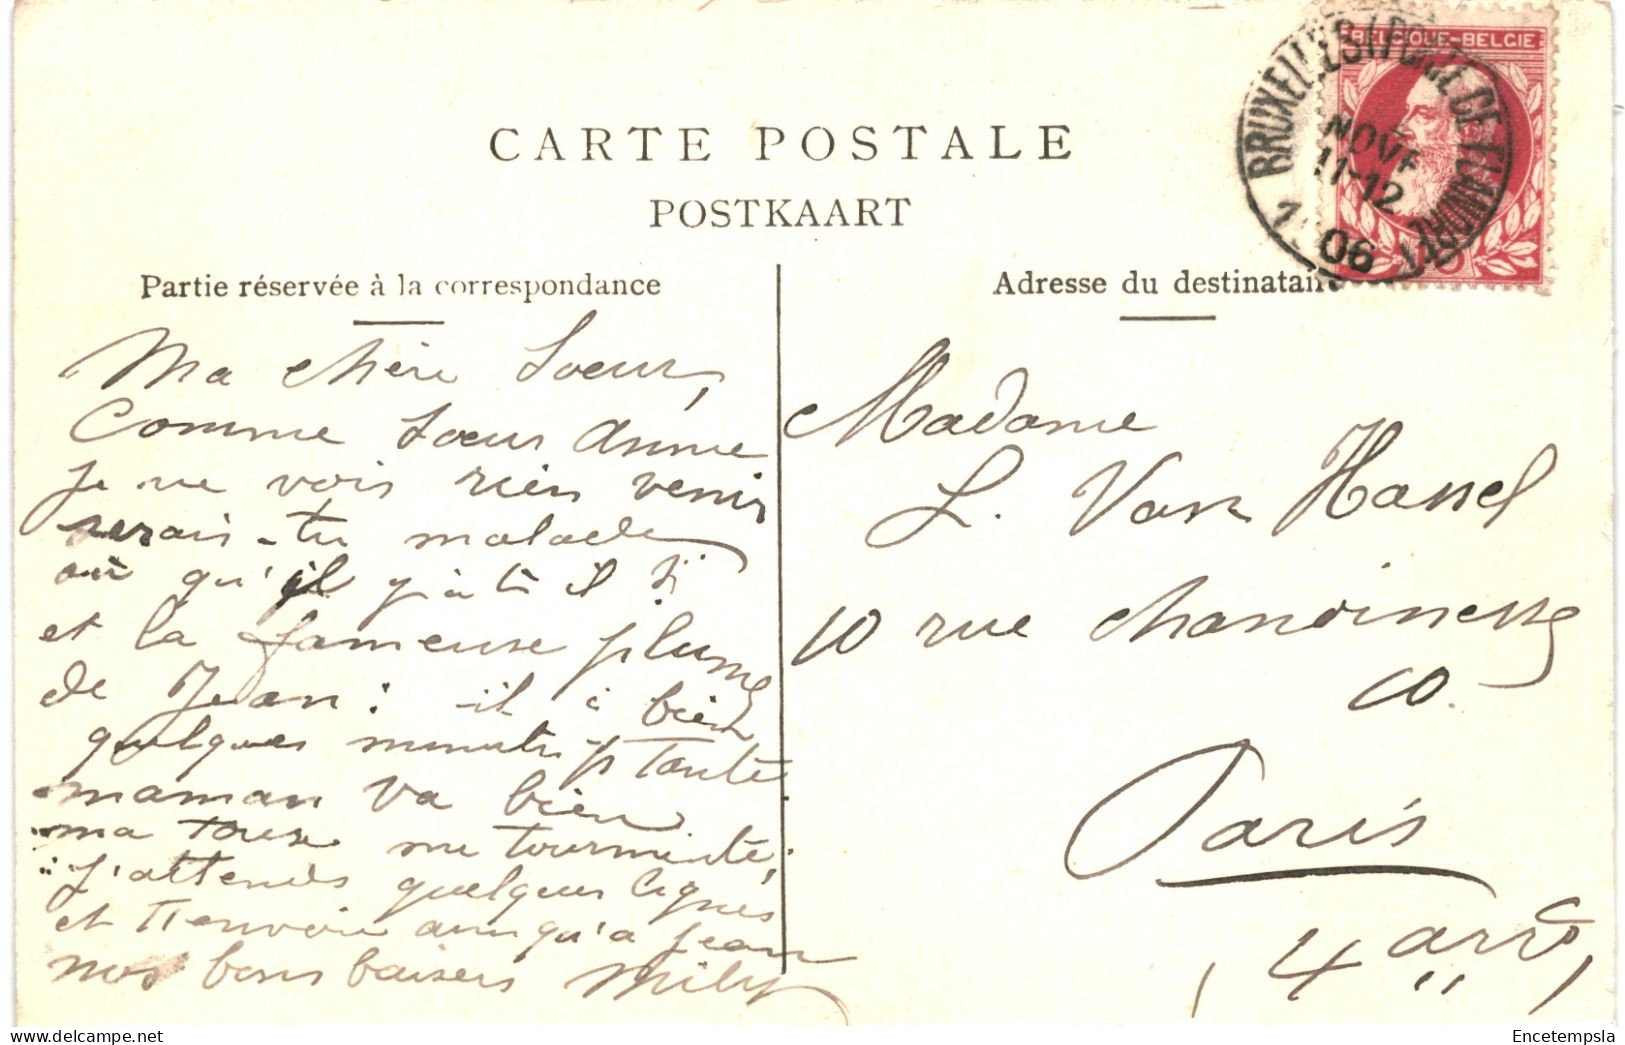 CARTE POSTALE
POSTKAART
BELGIQUE-BELGIE
BRUXELLES
NOVE
11-12
06
Partie réservée à la correspondance
Ma chère Soeur,
Comme Soeur Anne
je ne vois rien venir
serais-tu malade
ou qu'il y a t il ?
et la fameuse plume
de Jean : il a bien
quelques minutes
maman va bien
ma toux me tourmente,
j'attends quelques lignes
et t'envoie ainsi qu'a Jean
nos bons baisers Mily
Adresse du destinatair
Madame
L. Van Hassel
10 rue Chanoinesse
10.
Paris
(4 arr)
Encetempsla